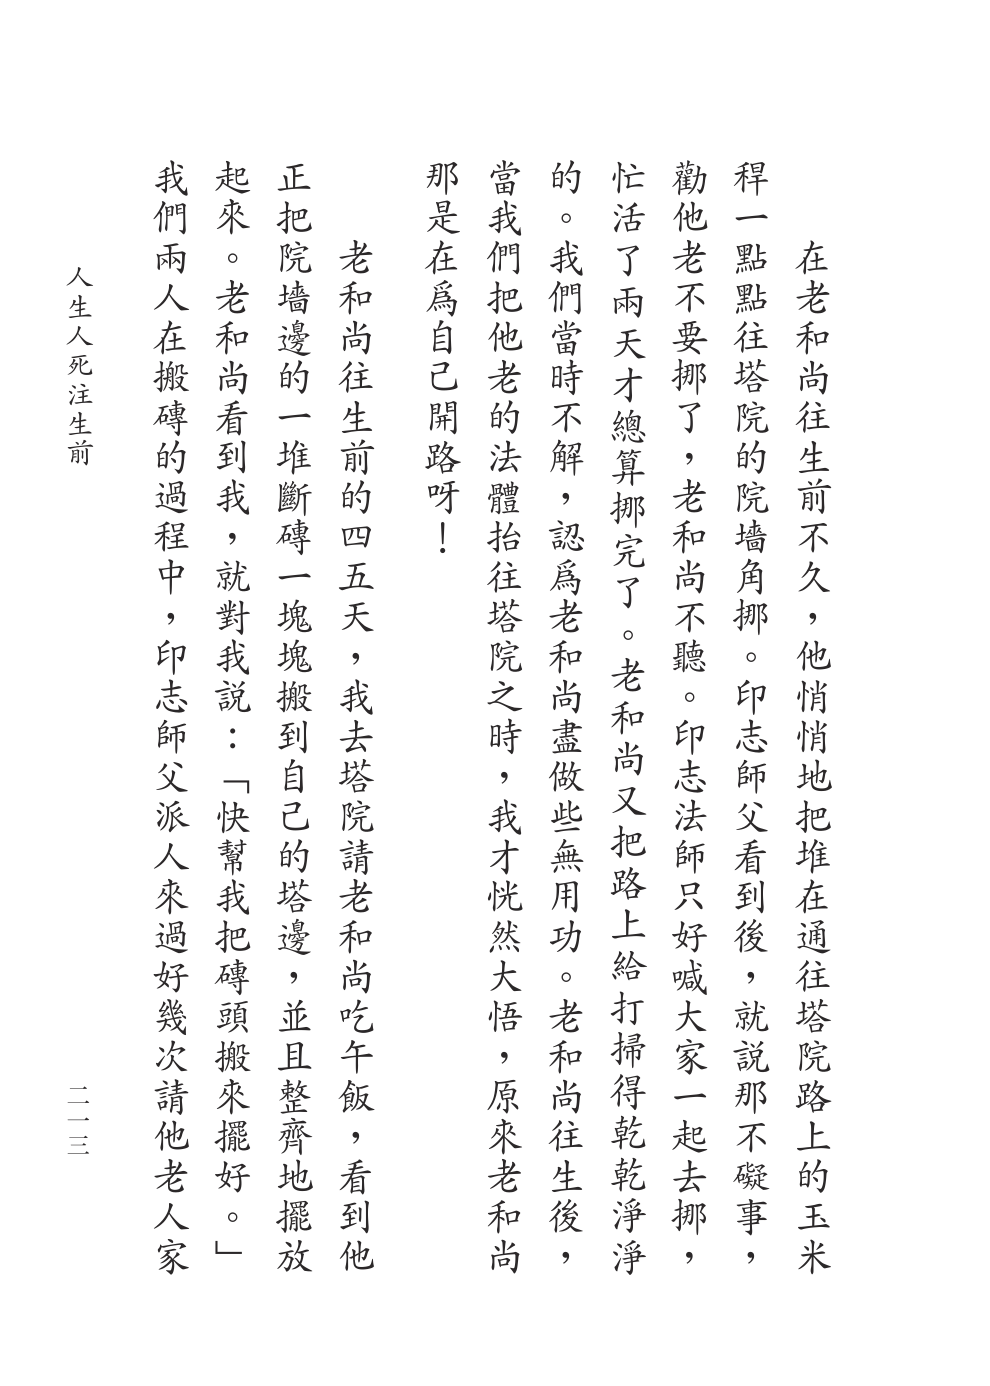 在老和尚往生前不久，他悄悄地把堆在通往塔院路上的玉米
稈一點點往塔院的院墻角挪。印志師父看到後，就説那不礙事，
勸他老不要挪了，老和尚不聽。印志法師只好喊大家一起去挪，
忙活了兩天才總算挪完了。老和尚又把路上給打掃得乾乾淨淨
的。我們當時不解，認爲老和尚盡做些無用功。老和尚往生後，
當我們把他老的法體抬往塔院之時，我才恍然大悟，原來老和尚
那是在爲自己開路呀！
老和尚往生前的四五天，我去塔院請老和尚吃午飯，看到他
正把院墻邊的一堆斷磚一塊塊搬到自己的塔邊，並且整齊地擺放
起來。老和尚看到我，就對我説：「快幫我把磚頭搬來擺好。」
我們兩人在搬磚的過程中，印志師父派人來過好幾次請他老人家
人生人死注生前
二一三